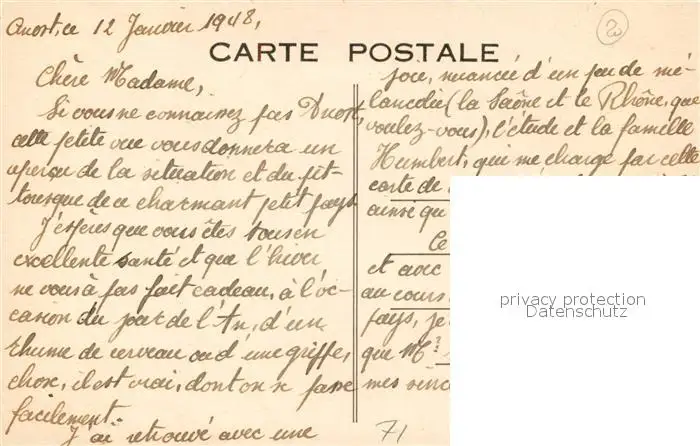 Anost, ce 12 Janvier 1948,
CARTE POSTALE
Chère Madame,
Si vous ne connaissez pas Anost,
cette petite vue vous donnera un
aperçu de la situation et du pit-
toresque de ce charmant petit pays.
J'espères que vous êtes tous en
excellente santé et que l'hiver
ne vous à pas fait cadeau, à l'oc-
casion du jour de l'An, d'un
rhume de cerveau ou d'une grippe,
chose, il est vrai, dont on se passe
facilement.
J'ai retrouvé avec une
joie, nuancée d'un peu de mé-
lancolie (la Saône et le Rhône, que
voulez-vous), l'étude et la famille
Humbert, qui me charge par cette
carte de
ainsi qu
Ce
et avec
au cours
pays, je
que Mr
mes sinc
71
20
privacy protection
Datenschutz